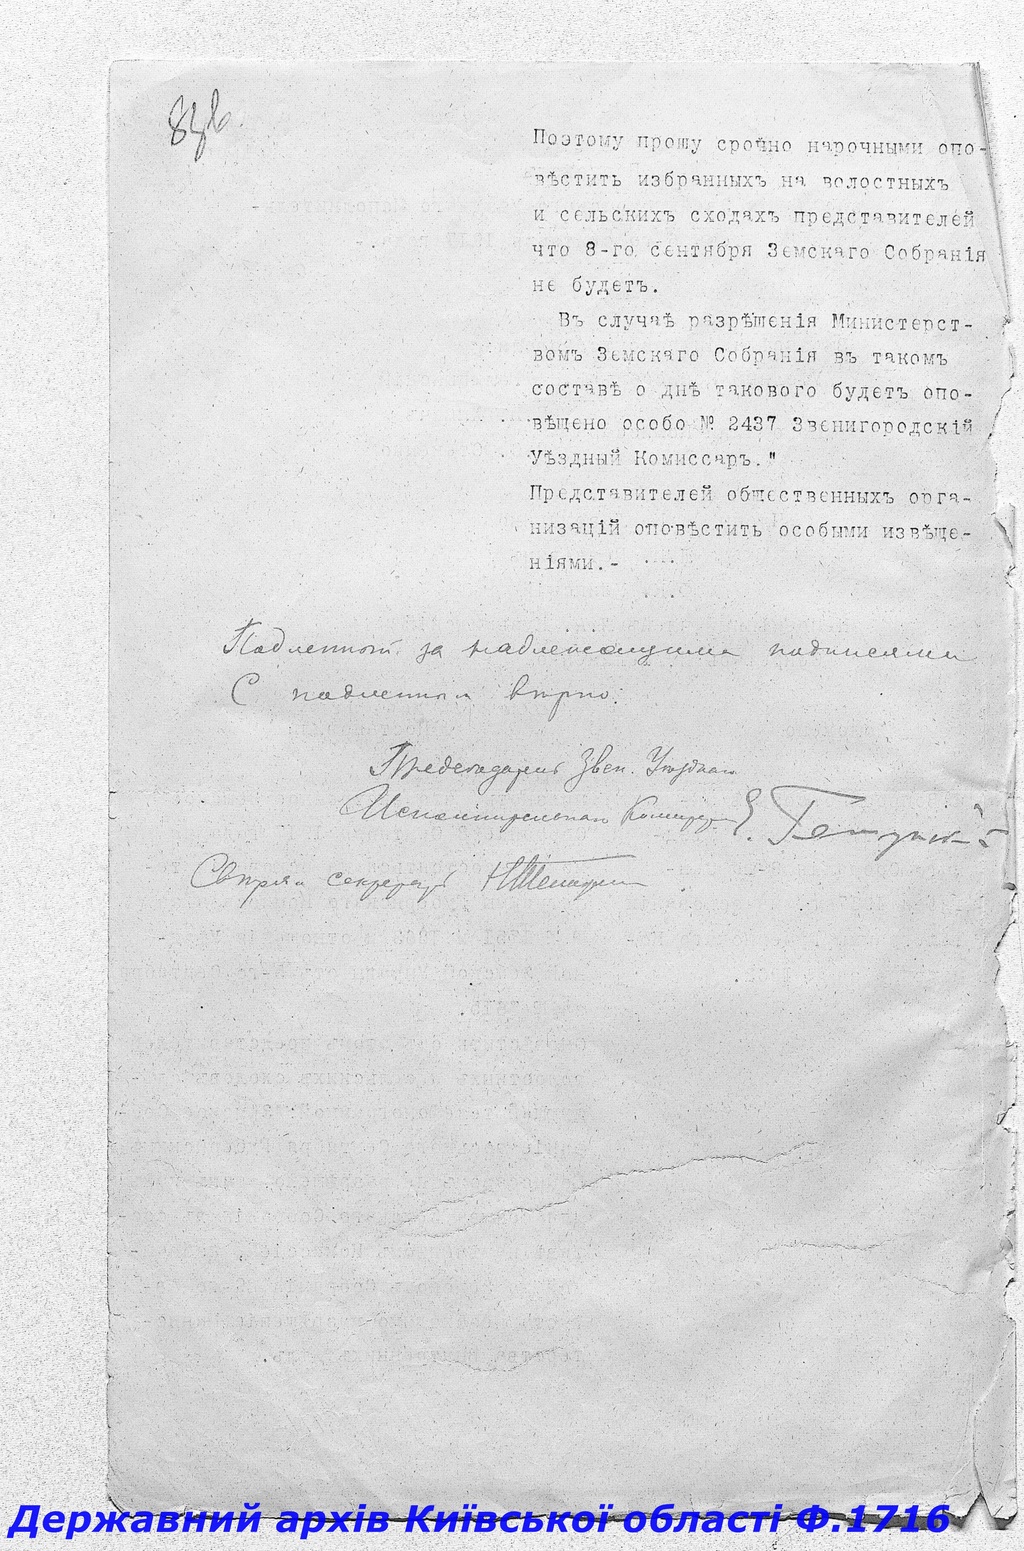 Поэтому прошу срочно нарочными опо-
вѣстить избранныхъ на волостныхъ
и сельскихъ сходахъ представителей
что 8-го сентября Земскаго Собранія
не будетъ.
Въ случаѣ разрѣшенія Министерст-
вомъ Земскаго Собранія въ такомъ
составѣ о днѣ такового будетъ опо-
вѣщено особо № 2437 Звенигородскій
Уѣздный Комиссаръ."
Представителей общественныхъ орга-
низацій оповѣстить особыми извѣще-
ніями.-
Подленный за надлежащими подписями
С подленным вѣрно:
Председатель Звен. Уѣзднаго
Исполнительнаго Комитета Е.
Свѣрял секретарь
Державний архів Київської області Ф.1716